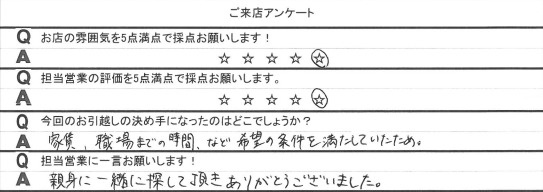 ご来店アンケート
Q お店の雰囲気を5点満点で採点お願いします！
A ☆ ☆ ☆ ☆ ☆
Q 担当営業の評価を5点満点で採点お願いします。
A ☆ ☆ ☆ ☆ ☆
Q 今回のお引越しの決め手になったのはどこでしょうか？
A 家賃、職場までの時間、など希望の条件を満たしていたため。
Q 担当営業に一言お願いします！
A 親身に一緒に探して頂きありがとうございました。